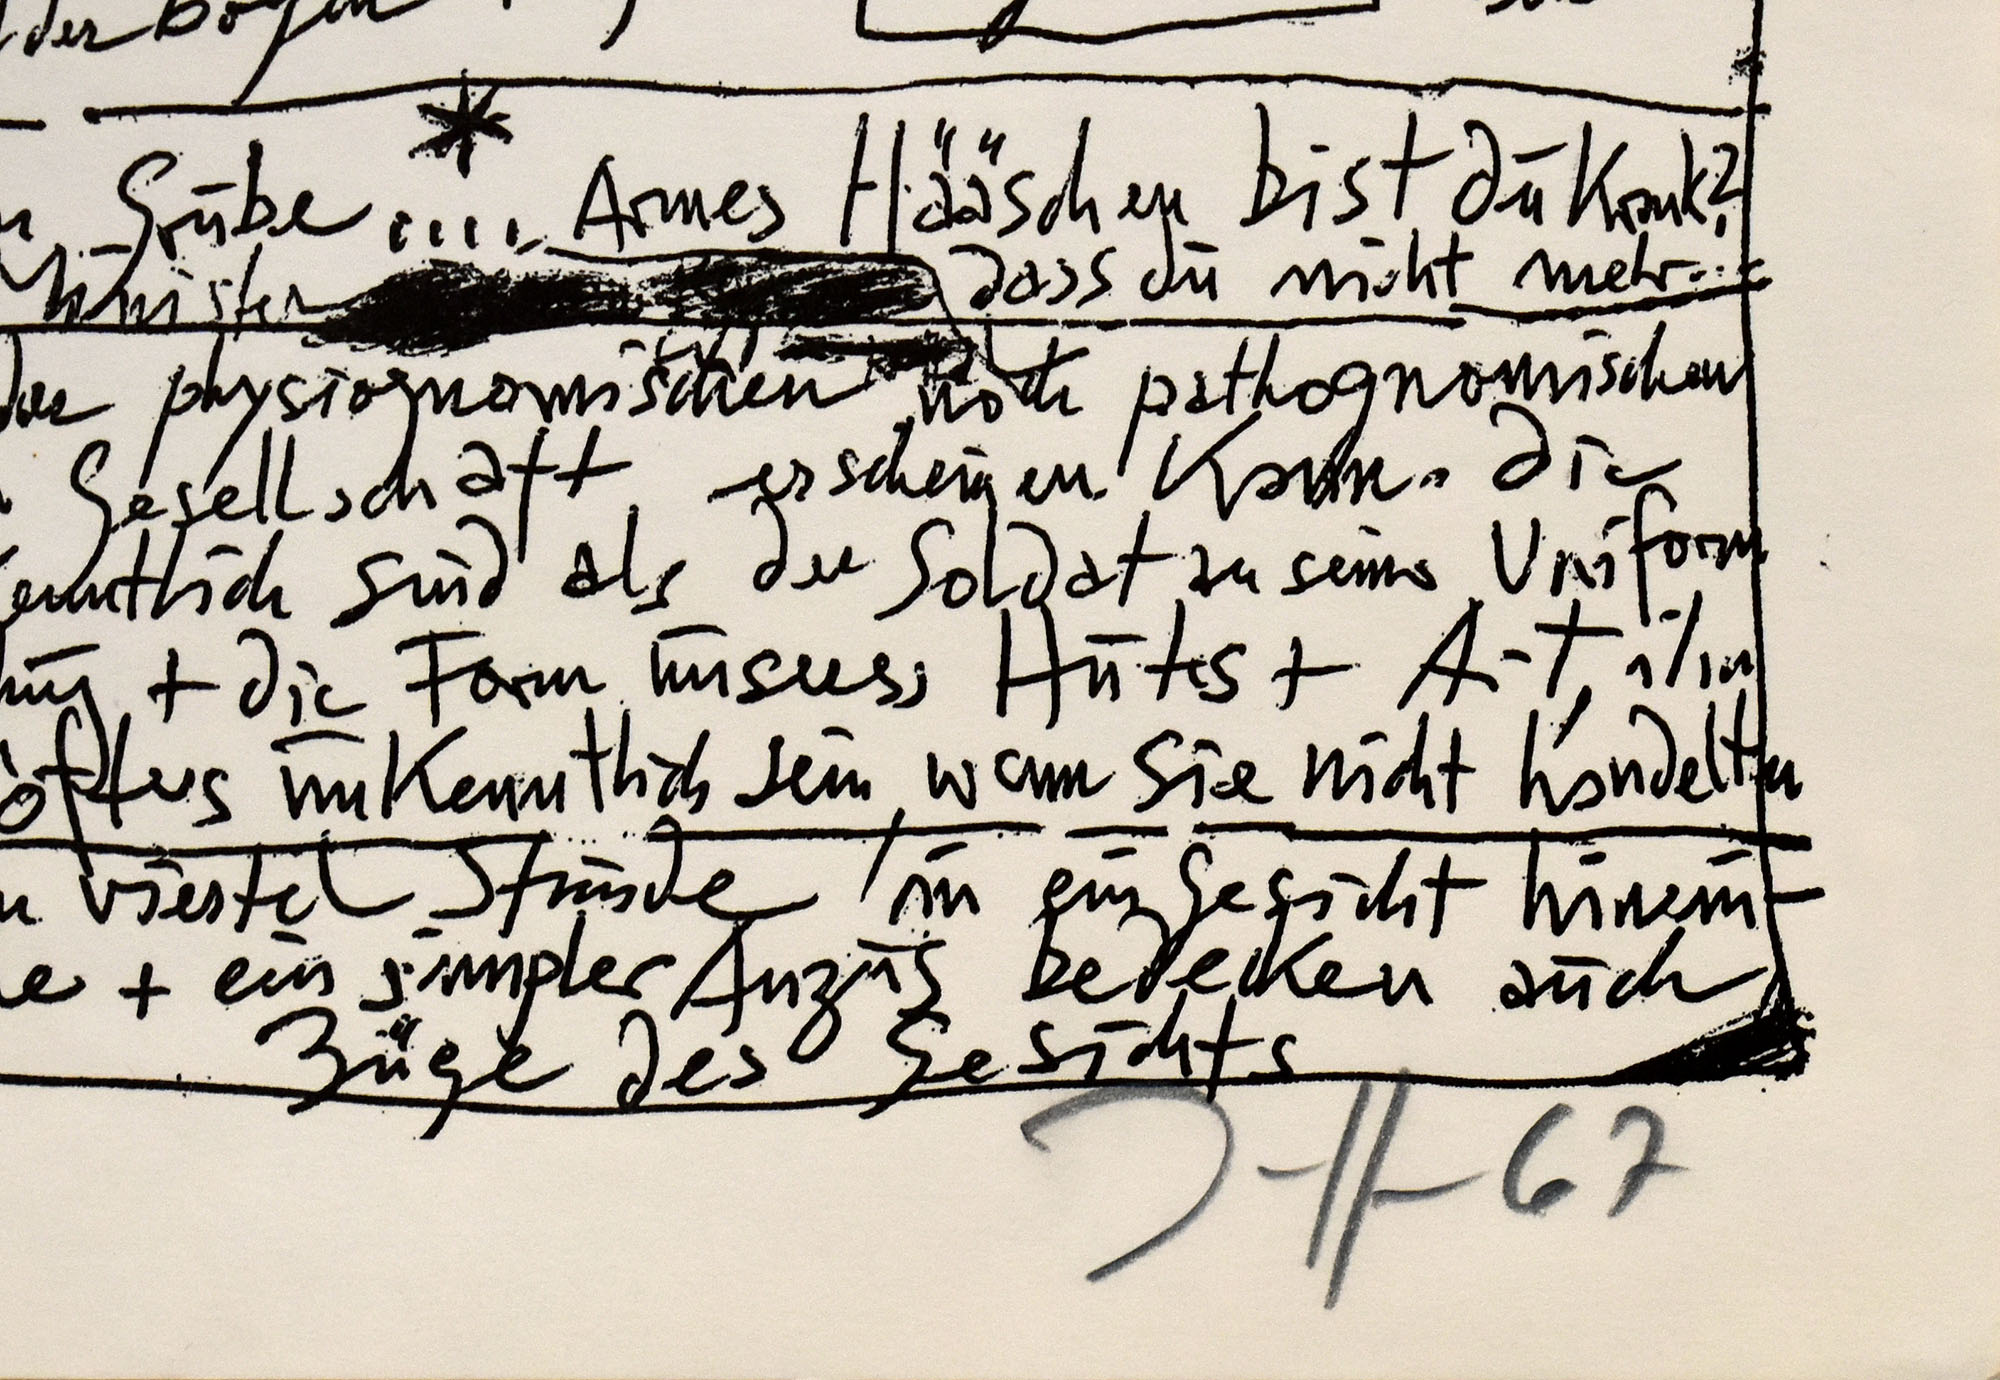 der Bogen
Grübe .... Armes Hääschen bist dū Krank?
Minister dass dū nicht mehr...
physiognomischen noch pathognomischen
Gesellschaft erscheinen Kann. die
Kenntlich sind als der Soldat an seine Uniform
+ die Form ūnseres Hūtes + A-T, i/in
öfters ūnKenntlich sein, wenn Sie nicht handelten
viertel Stūnde in ein Gesicht hinein-
+ ein simpler Anzūg bedecKen aūch
Züge des Gesichts
67